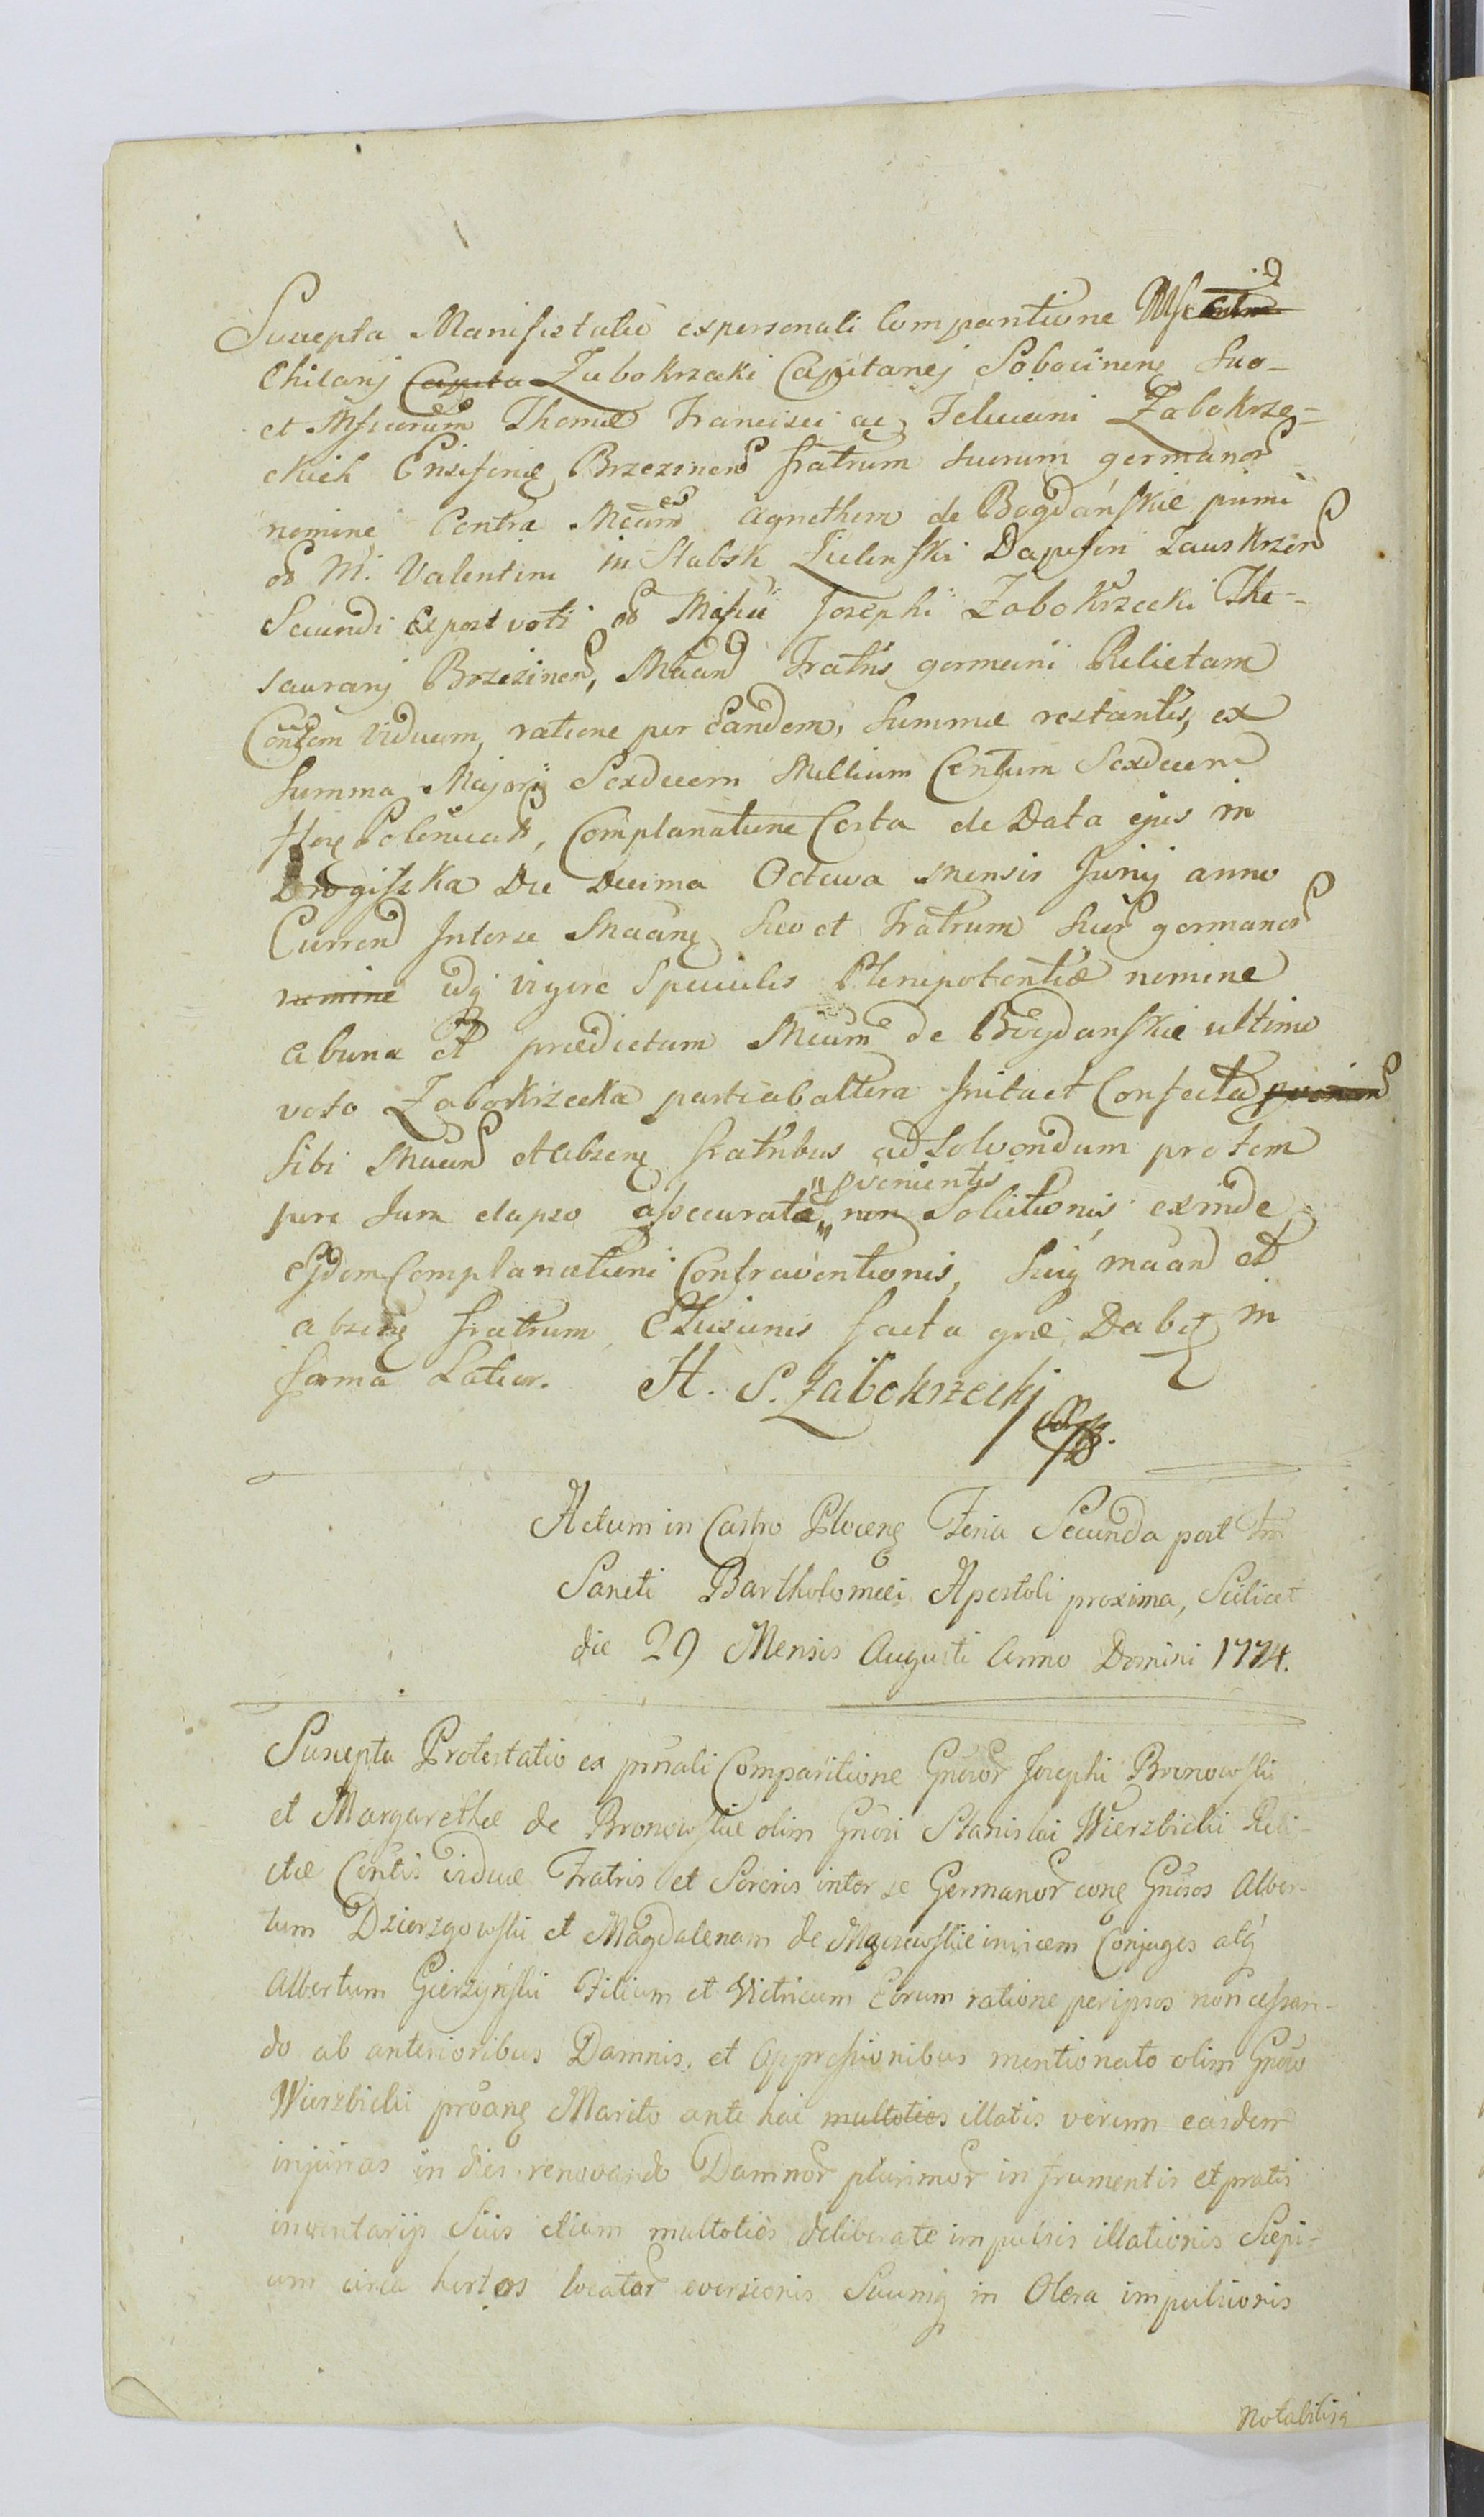 Suscepta Manifestatio ex personali Comparitione Mfci
Chilarij Capita Zabokrzecki Capitanej Sobocinens Suo
et Mficorum Thomæ Francisci ac Feliciani Zabokrze-
ckich Ensiferi Brzezinens fratrum suorum germanor
nomine Contra Mcam Agnethem de Bogdańskie primi
M. Valentini in Stabsk Zielinski Dapiferi Zauskrzen
Secundi ex post voti Mfici Josephi Zabokrzecki The-
saurarij Brzezinens, Maand Fratris germani Relictam
Contem Viduam, ratione per Eandem, Summæ restantis, ex
Summa Majori Sexdecem Millium Centum Sexdecem
flor Polonicals, Complanatione Certa de Data ejus in
Drogiszka Die Decima Octava mensis Junij anno
Currend Interse Maane suo et Fratrum Suor germanor
nomine idq vigore Specialis Plenipotentiæ nomine
ab una et prædictam Mcam de Bogdanskie ultimo
voto Zabokrzecka parte ab altera Inita et Confecta
sibi Maand et absene fratribus ad Solvendum pro tem
pore Jam elapso assecuratæ „pvenientis
non Solutionis exinde
Ejdem Complanationi Contraventionis, Suiq maand et
absene fratrum Elusionis facta græ, Dabit in
forma Latior. H. S. Zabokrzecki

Actum in Castro Plocens Feria Secunda post Fm
Sancti Bartholomæi Apostoli proxima, Scilicet
die 29 Mensis Augusti Anno Domini 1774.

Suscepta Protestatio ex prnali Comparitione Gnsor Josephi Bronowski
et Margarethæ de Bronowskie olim Gnsi Stanislai Wierzbicki Reli-
ctæ Contis viduæ Fratris et Sororis inter se Germanor cone Gnsos Alber-
tum Dzierzgowski et Magdalenam de Maczewskie invicem Conjuges atq
Albertum Gierzyński Filium et Vitricum Eorum ratione per ipsos non cessan-
do ab anterioribus Damnis, et Oppressionibus mentionato olim Gnso
Wierzbicki proane Marito ante hac multoties illatis verum easdem
injurias in dies renovando Damnor plurimor in frumentis et pratis
inventarijs Suis etiam multoties deliberate impulsis illationis Sæpi-
um circa hortos locator eversionis Suumq in Olera impulsionis
Notabiliq